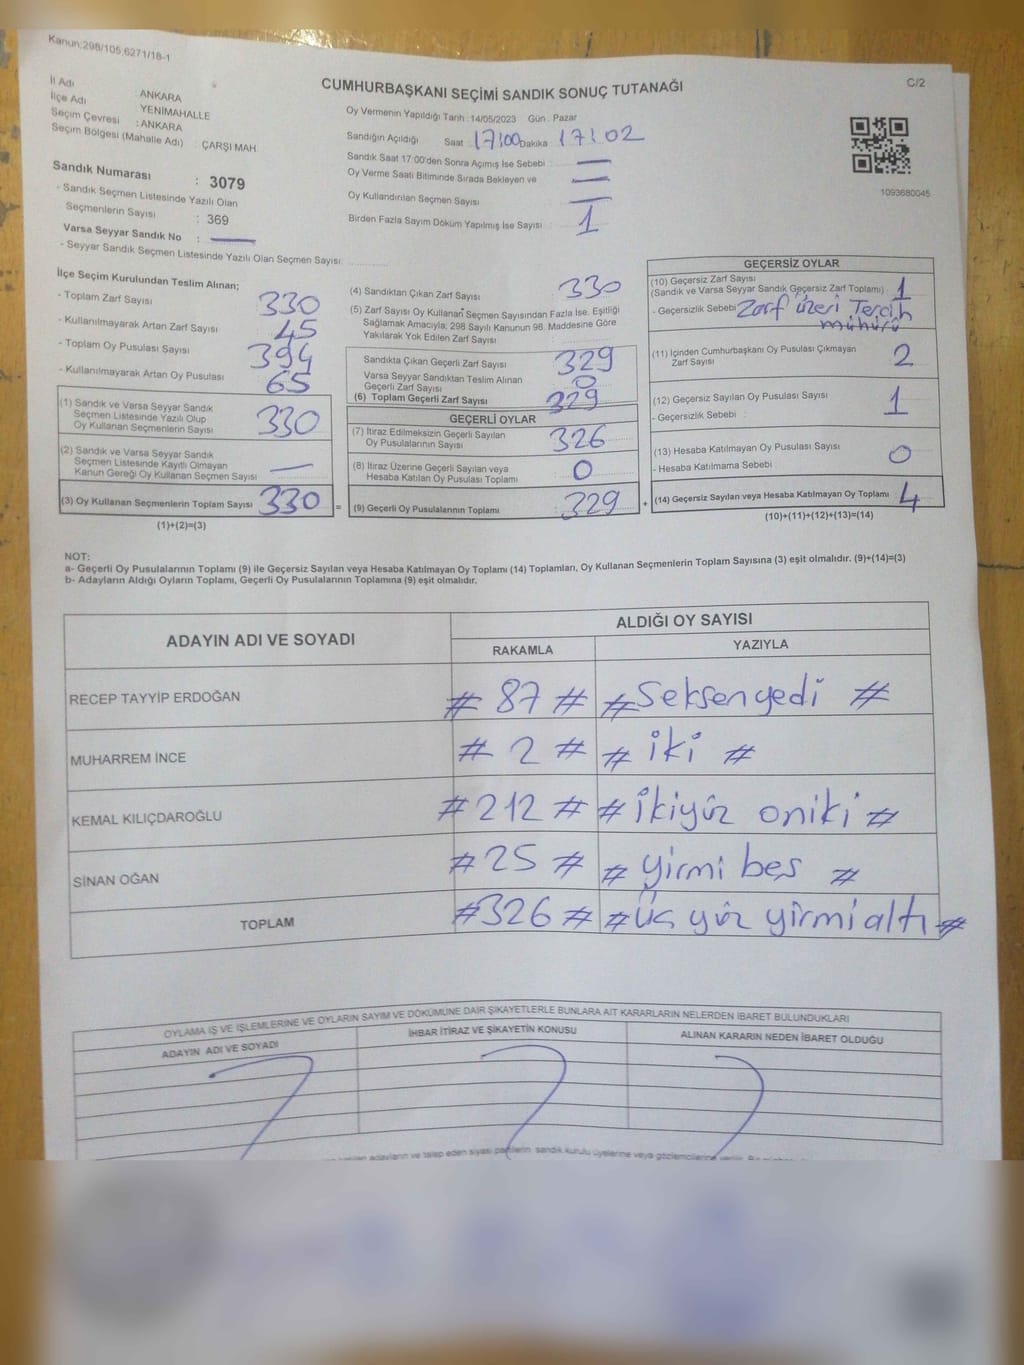 Kanun;298/105,6271/18-1
C/2
CUMHURBAŞKANI SEÇİMİ SANDIK SONUÇ TUTANAĞI
İl Adı ANKARA
İlçe Adı YENİMAHALLE
Seçim Çevresi : ANKARA
Seçim Bölgesi (Mahalle Adı) ÇARŞI MAH.
Sandık Numarası : 3079
- Sandık Seçmen Listesinde Yazılı Olan
Seçmenlerin Sayısı : 369
Varsa Seyyar Sandık No : —
- Seyyar Sandık Seçmen Listesinde Yazılı Olan Seçmen Sayısı:
Oy Vermenin Yapıldığı Tarih : 14/05/2023 Gün : Pazar
Sandığın Açıldığı Saat 17:00 Dakika 17:02
Sandık Saat 17:00'den Sonra Açımış İse Sebebi : —
Oy Verme Saati Bitiminde Sırada Bekleyen ve —
Oy Kullandırılan Seçmen Sayısı —
Birden Fazla Sayım Döküm Yapılmış İse Sayısı : 1
1093680045
İlçe Seçim Kurulundan Teslim Alınan;
- Toplam Zarf Sayısı 330
- Kullanılmayarak Artan Zarf Sayısı 45
- Toplam Oy Pusulası Sayısı 394
- Kullanılmayarak Artan Oy Pusulası 65
(1) Sandık ve Varsa Seyyar Sandık
Seçmen Listesinde Yazılı Olup
Oy Kullanan Seçmenlerin Sayısı 330
(2) Sandık ve Varsa Seyyar Sandık
Seçmen Listesinde Kayıtlı Olmayan
Kanun Gereği Oy Kullanan Seçmen Sayısı —
(3) Oy Kullanan Seçmenlerin Toplam Sayısı 330 =
(1)+(2)=(3)
(4) Sandıktan Çıkan Zarf Sayısı 330
(5) Zarf Sayısı Oy Kullanan Seçmen Sayısından Fazla İse, Eşitliği
Sağlamak Amacıyla; 298 Sayılı Kanunun 98. Maddesine Göre
Yakılarak Yok Edilen Zarf Sayısı
Sandıkta Çıkan Geçerli Zarf Sayısı 329
Varsa Seyyar Sandıktan Teslim Alınan
Geçerli Zarf Sayısı 0
(6) Toplam Geçerli Zarf Sayısı 329
GEÇERLİ OYLAR
(7) İtiraz Edilmeksizin Geçerli Sayılan
Oy Pusulalarının Sayısı 326
(8) İtiraz Üzerine Geçerli Sayılan veya
Hesaba Katılan Oy Pusulası Toplamı 0
(9) Geçerli Oy Pusulalarının Toplamı 329 +
GEÇERSİZ OYLAR
(10) Geçersiz Zarf Sayısı
(Sandık ve Varsa Seyyar Sandık Geçersiz Zarf Toplamı) : 1
- Geçersizlik Sebebi : Zarf üzeri Tercih
mühürü
(11) İçinden Cumhurbaşkanı Oy Pusulası Çıkmayan
Zarf Sayısı 2
(12) Geçersiz Sayılan Oy Pusulası Sayısı 1
- Geçersizlik Sebebi :
(13) Hesaba Katılmayan Oy Pusulası Sayısı 0
- Hesaba Katılmama Sebebi :
(14) Geçersiz Sayılan veya Hesaba Katılmayan Oy Toplamı 4
(10)+(11)+(12)+(13)=(14)
NOT:
a- Geçerli Oy Pusulalarının Toplamı (9) ile Geçersiz Sayılan veya Hesaba Katılmayan Oy Toplamı (14) Toplamları, Oy Kullanan Seçmenlerin Toplam Sayısına (3) eşit olmalıdır. (9)+(14)=(3)
b- Adayların Aldığı Oyların Toplamı, Geçerli Oy Pusulalarının Toplamına (9) eşit olmalıdır.
ADAYIN ADI VE SOYADI
ALDIĞI OY SAYISI
RAKAMLA YAZIYLA
RECEP TAYYİP ERDOĞAN # 87 # # Seksenyedi #
MUHARREM İNCE # 2 # # iki #
KEMAL KILIÇDAROĞLU # 212 # # ikiyüz oniki #
SİNAN OĞAN # 25 # # yirmi beş #
TOPLAM # 326 # # Üç yüz yirmialtı #
OYLAMA İŞ VE İŞLEMLERİNE VE OYLARIN SAYIM VE DÖKÜMÜNE DAİR ŞİKAYETLERLE BUNLARA AİT KARARLARIN NELERDEN İBARET BULUNDUKLARI
ADAYIN ADI VE SOYADI İHBAR İTİRAZ VE ŞİKAYETİN KONUSU ALINAN KARARIN NEDEN İBARET OLDUĞU
adayların ve talep eden siyasi partilerin sandık kurulu üyelerine veya gözlemcilerine